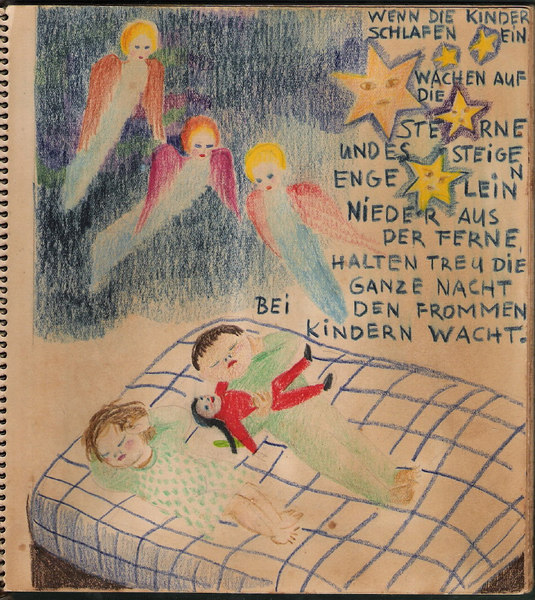 WENN DIE KINDER
SCHLAFEN EIN
WACHEN AUF
DIE
STERNE
UND ES STEIGEN
ENGELEIN
NIEDER AUS
DER FERNE,
HALTEN TREU DIE
GANZE NACHT
BEI DEN FROMMEN
KINDERN WACHT.